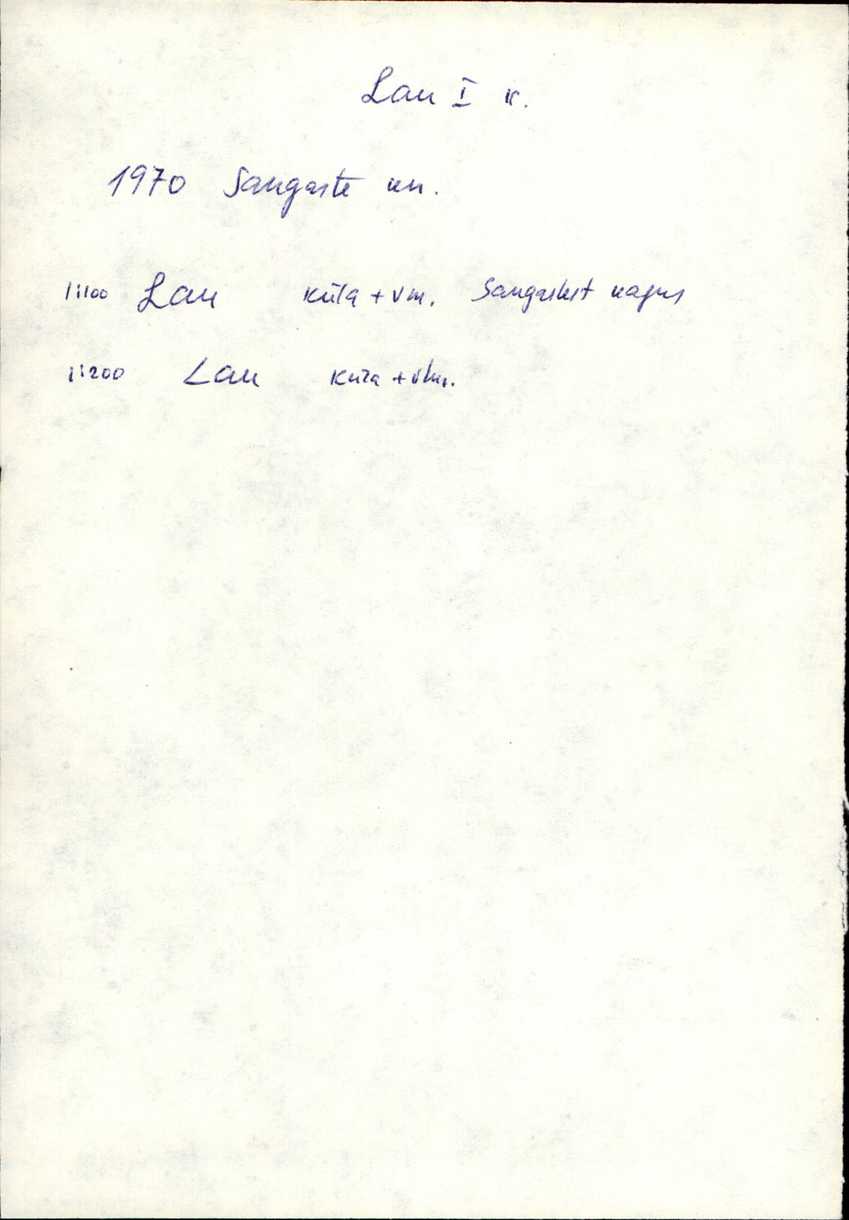 Lau I k.
1970 Sangaste kn.
1:100 Lau küla + vm. Sangastest kagus
1:200 Lau küla + vm.